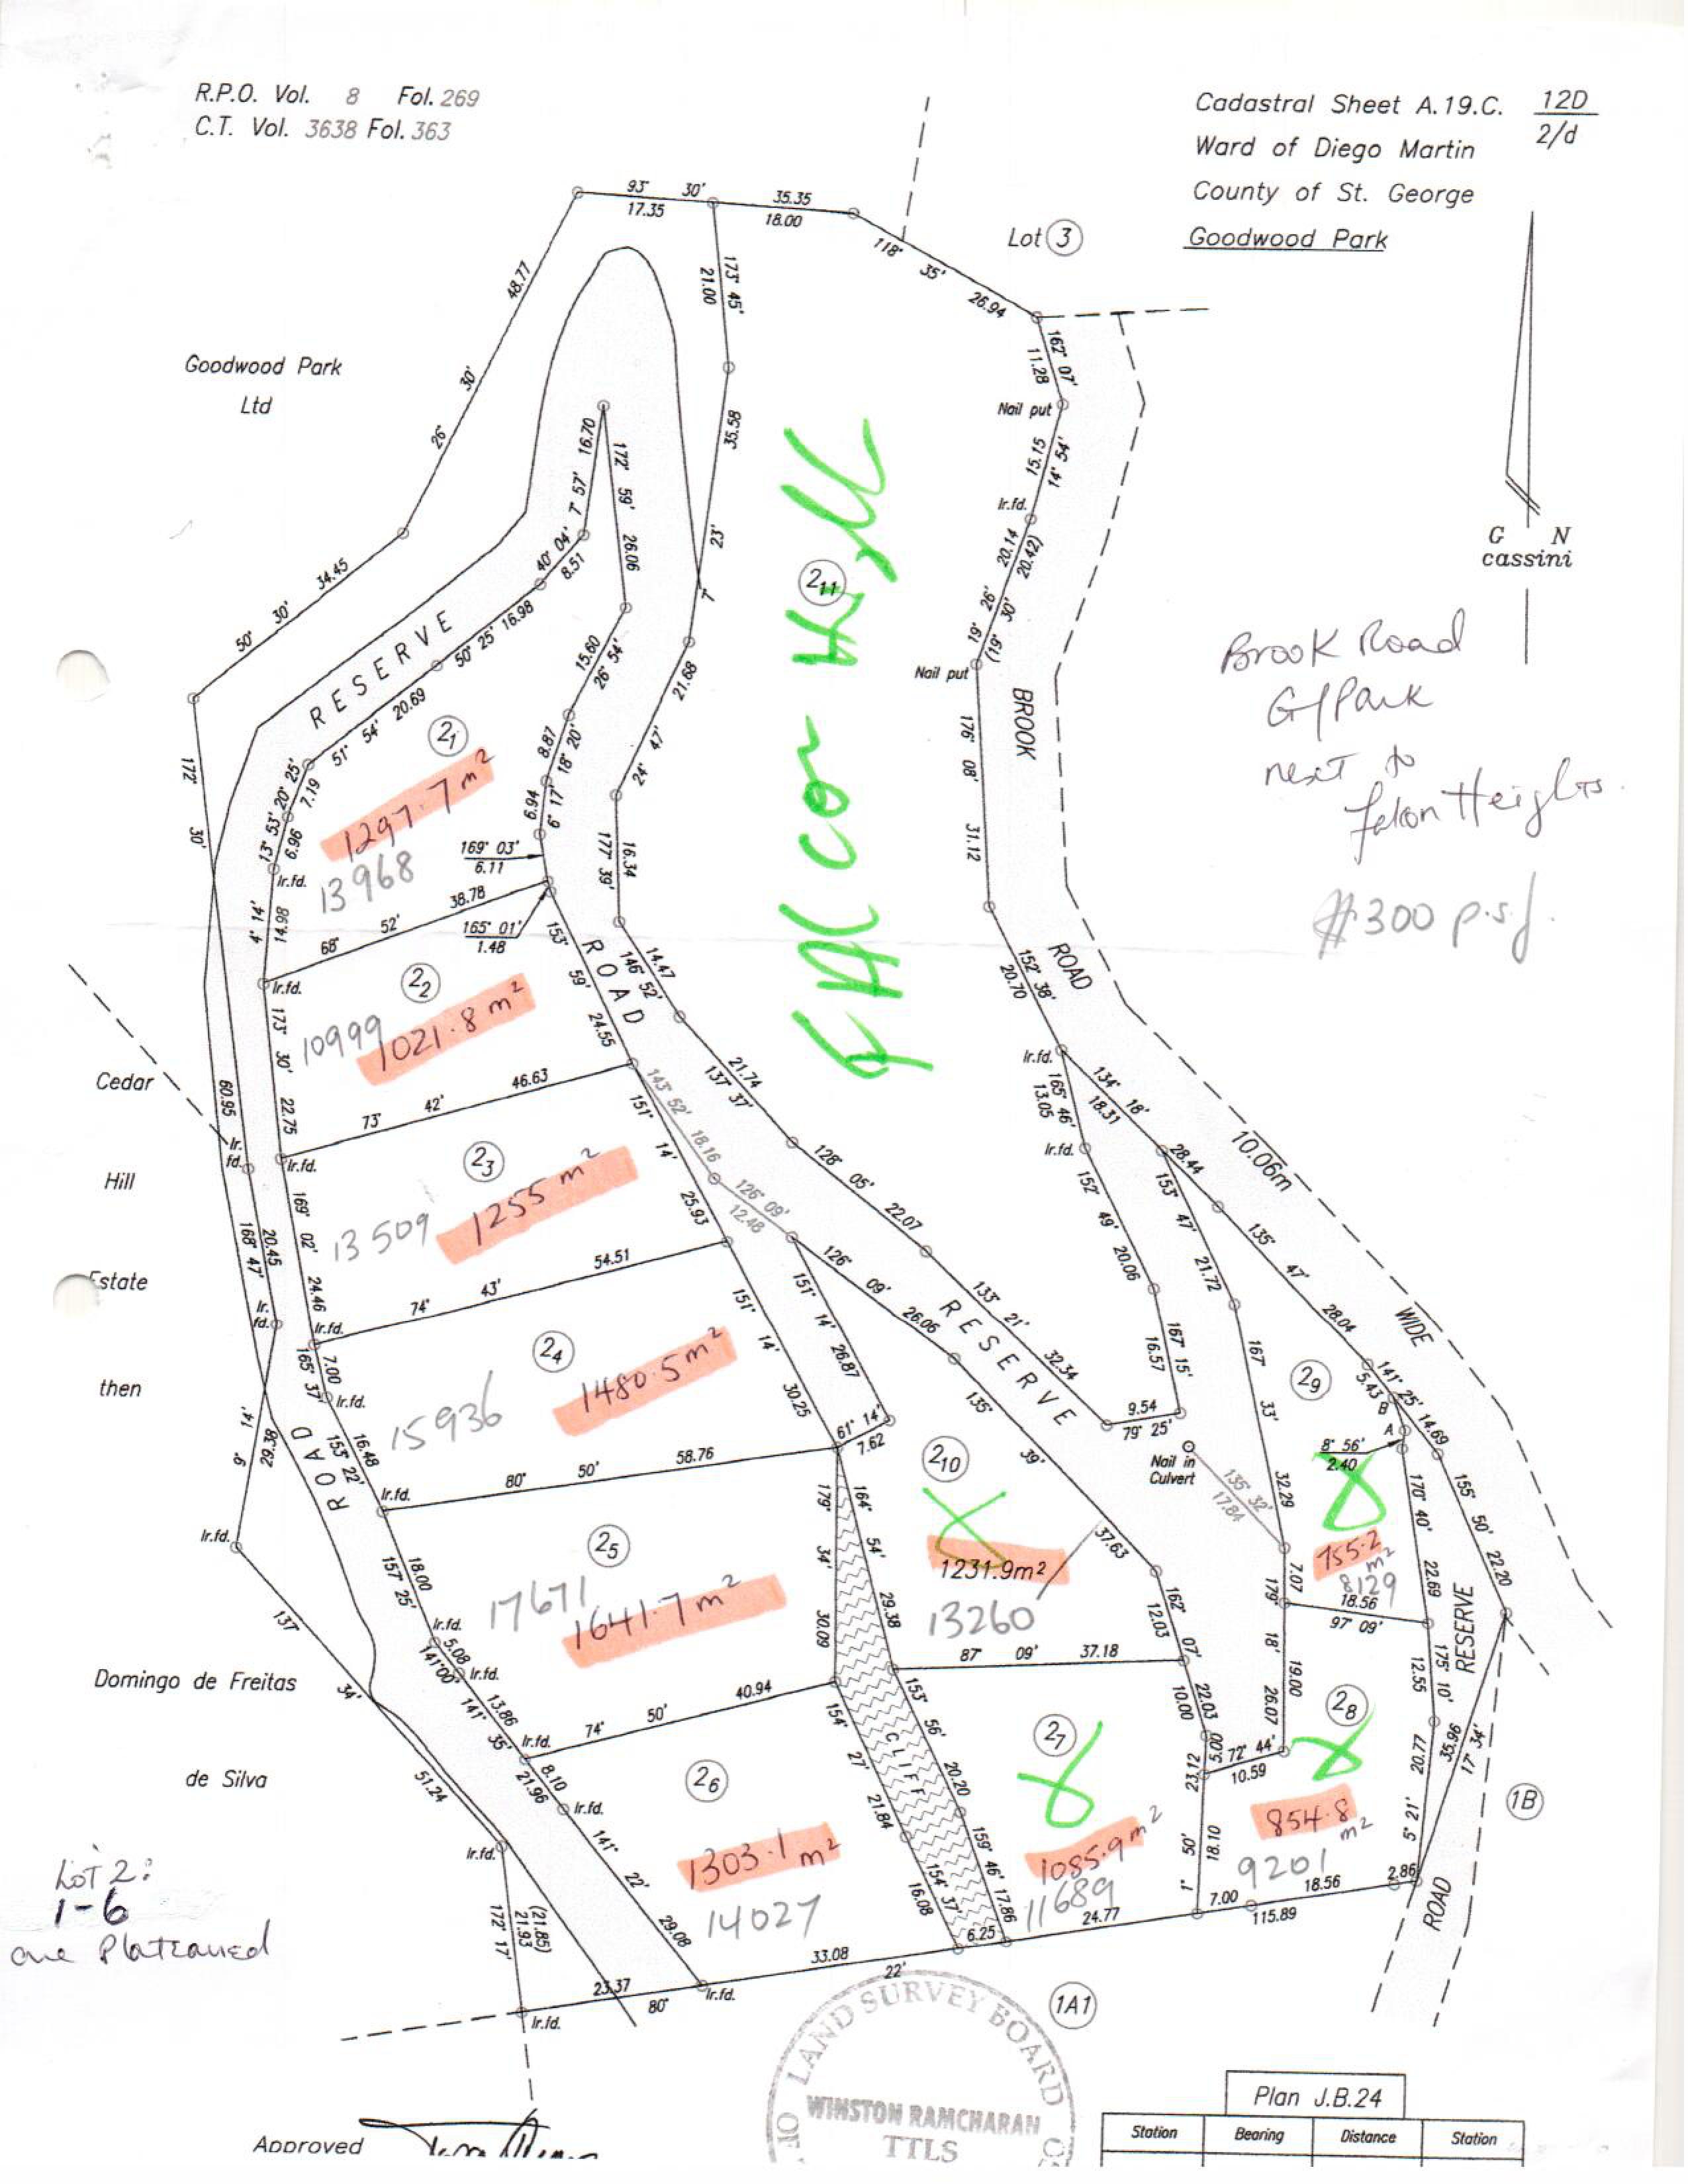 R.P.O. Vol. 8 Fol. 269
C.T. Vol. 3638 Fol. 363
Cadastral Sheet A.19.C. 12D
2/d
Ward of Diego Martin
County of St. George
Goodwood Park
Lot 3
93° 30'
17.35
35.35
18.00
118° 35'
26.94
173° 45'
21.00
48.77
26° 30'
Goodwood Park
Ltd
162° 07'
11.28
Nail put
15.15
14° 54'
Ir.fd.
35.58
23'
7°
16.70
7° 57'
172° 59'
26.06
40° 04'
8.51
20.14
20.42)
19° 26'
(19° 30'
Nail put
G N
cassini
34.45
50° 30'
50° 25' 16.98
15.60
26° 54'
21.68
24° 47'
2 11
RESERVE
51° 54' 20.69
20° 25'
7.19
8.87
18° 20'
6.94
6° 17'
172° 30'
2 1
1297.7 m²
13968
13° 53'
6.96
Ir.fd.
169° 03'
6.11
165° 01'
1.48
68° 52' 38.78
4° 14'
14.98
16.34
177° 39'
BROOK
176° 08'
31.12
Brook Road
G/Park
next to
Falcon Heights.
$300 p.s.f.
153° 59'
24.55
ROAD
14.47
146° 52'
152° 38'
20.70
ROAD
Ir.fd.
2 2
10999 1021.8 m²
173° 30'
22.75
73° 42' 46.63
Cedar
60.95
Ir.
fd.
Ir.fd.
143° 52' 18.16
151° 14'
25.93
21.74
137° 37'
Ir.fd.
134° 18'
18.31
165° 46'
13.05
Ir.fd.
28.44
10.06m
Hill
2 3
13509 1255 m²
169° 02'
24.46
20.45
168° 47'
Ir.
fd.
126° 09'
12.48
128° 05' 22.07
152° 49' 20.06
153° 47'
21.72
135° 47'
28.04
WIDE
Estate
74° 43' 54.51
Ir.fd.
7.00
165° 37'
Ir.fd.
151° 14'
30.25
151° 14'
26.87
126° 09'
26.06
RESERVE
133° 21'
32.34
167° 15'
16.57
9.54
79° 25'
then
2 4
15936 1480.5 m²
9° 14'
29.38
ROAD
16.48
153° 22'
Ir.fd.
80° 50' 58.76
61° 14'
7.62
135° 39'
37.63
Nail in
Culvert
135° 32'
17.84
167° 33'
32.29
2 9
141° 25'
5.43
B
A
14.69
8° 56'
2.40
170° 40'
22.69
155° 50'
22.20
2 5
17671 1641.7 m²
Ir.fd.
157° 25'
18.00
179° 34'
30.09
164° 54'
29.38
2 10
1231.9m²
13260
755.2
m²
8129
7.07
179° 18'
19.00
26.07
18.56
97° 09'
RESERVE
162° 07'
12.03
22.03
10.00
5.00
Ir.fd.
5.08
141° 00'
Ir.fd.
13.86
141° 35'
137° 34'
51.24
Domingo de Freitas
de Silva
74° 50' 40.94
Ir.fd.
8.10
21.96
Ir.fd.
87° 09' 37.18
CLIFF
154° 27'
21.84
153° 56'
20.20
2 6
1303.1 m²
14027
2 7
1085.9 m²
11689
23.12
72° 44'
10.59
2 8
854.8
m²
9201
175° 10'
12.55
20.77
5° 21'
35.96
17° 34'
1B
Ir.fd.
141° 22'
29.08
154° 37'
16.08
159° 46'
17.86
1° 50'
18.10
7.00
18.56
2.86
115.89
24.77
6.25
33.08
22'
23.37
80°
Ir.fd.
Ir.fd.
172° 17'
21.93
(21.85)
Lot 2:
1-6
are Plateaued
1A1
ROAD
LAND SURVEY BOARD
WINSTON RAMCHARAN
TTLS
Approved
Plan J.B.24
Station Bearing Distance Station